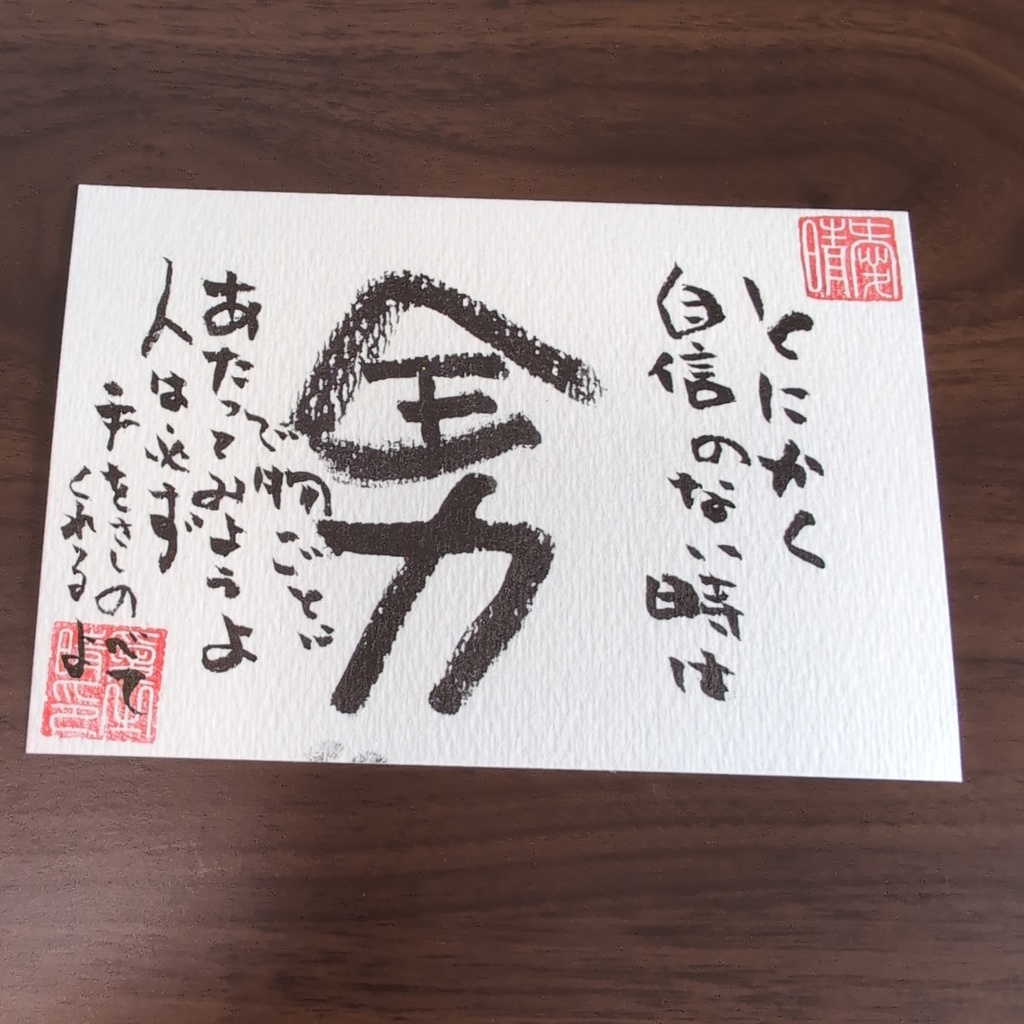 とにかく
自信のない時は
全力
で胸ごとに
あたってみようよ
人は必ず
手をさしのべて
くれるよ